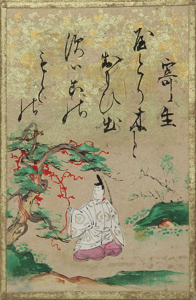 寄生
屋とり木と
おもひ出
すハこの
もとの